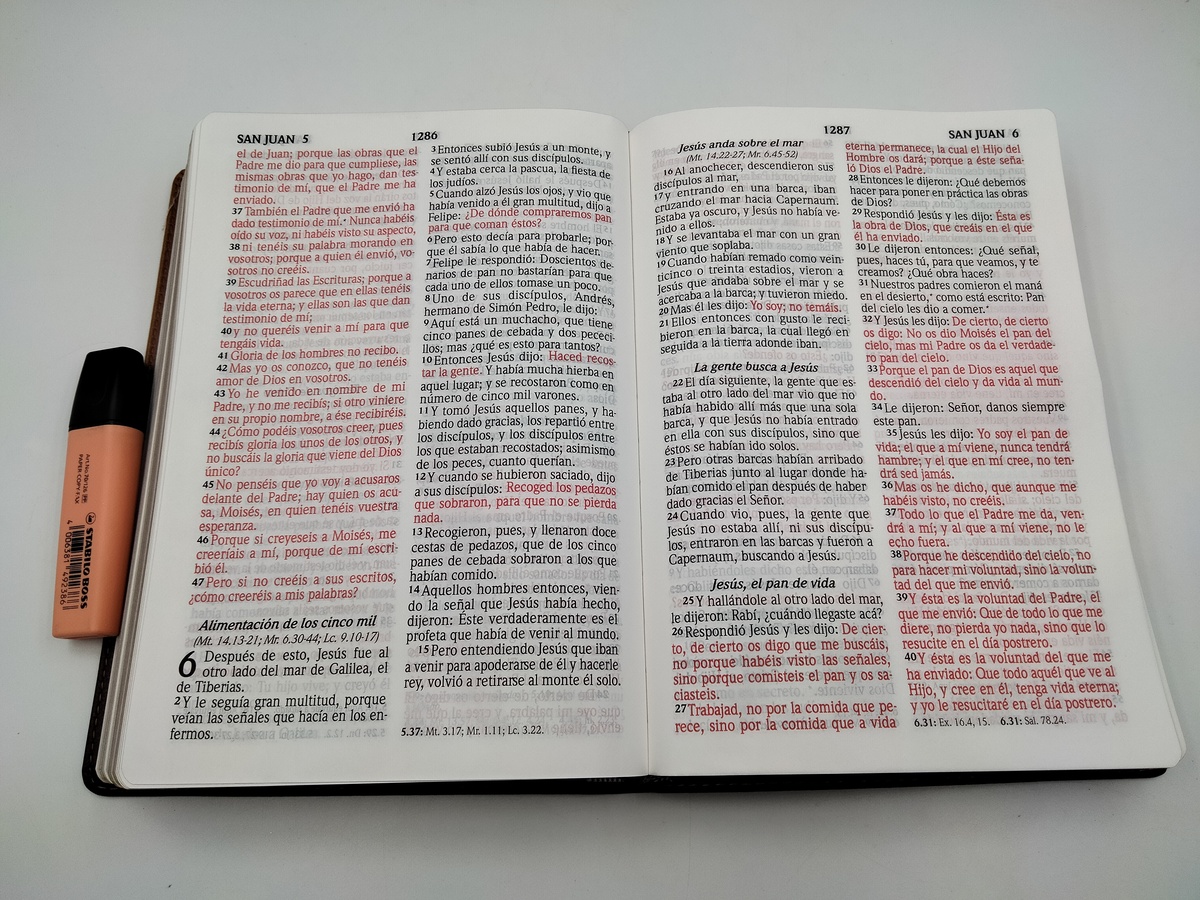 SAN JUAN 5
1286
el de Juan; porque las obras que el
Padre me dio para que cumpliese, las
mismas obras que yo hago, dan tes-
timonio de mí, que el Padre me ha
enviado.
37 También el Padre que me envió ha
dado testimonio de mí.* Nunca habéis
oído su voz, ni habéis visto su aspecto,
38 ni tenéis su palabra morando en
vosotros; porque a quien él envió, vo-
sotros no creéis.
39 Escudriñad las Escrituras; porque a
vosotros os parece que en ellas tenéis
la vida eterna; y ellas son las que dan
testimonio de mí;
40 y no queréis venir a mí para que
tengáis vida.
41 Gloria de los hombres no recibo.
42 Mas yo os conozco, que no tenéis
amor de Dios en vosotros.
43 Yo he venido en nombre de mi
Padre, y no me recibís; si otro viniere
en su propio nombre, a ése recibiréis.
44 ¿Cómo podéis vosotros creer, pues
recibís gloria los unos de los otros, y
no buscáis la gloria que viene del Dios
único?
45 No penséis que yo voy a acusaros
delante del Padre; hay quien os acu-
sa, Moisés, en quien tenéis vuestra
esperanza.
46 Porque si creyeseis a Moisés, me
creeríais a mí, porque de mí escri-
bió él.
47 Pero si no creéis a sus escritos,
¿cómo creeréis a mis palabras?
Alimentación de los cinco mil
(Mt. 14.13-21; Mr. 6.30-44; Lc. 9.10-17)
6 Después de esto, Jesús fue al
otro lado del mar de Galilea, el
de Tiberias.
2 Y le seguía gran multitud, porque
veían las señales que hacía en los en-
fermos.
3 Entonces subió Jesús a un monte, y
se sentó allí con sus discípulos.
4 Y estaba cerca la pascua, la fiesta de
los judíos.
5 Cuando alzó Jesús los ojos, y vio que
había venido a él gran multitud, dijo a
Felipe: ¿De dónde compraremos pan
para que coman éstos?
6 Pero esto decía para probarle; por-
que él sabía lo que había de hacer.
7 Felipe le respondió: Doscientos de-
narios de pan no bastarían para que
cada uno de ellos tomase un poco.
8 Uno de sus discípulos, Andrés,
hermano de Simón Pedro, le dijo:
9 Aquí está un muchacho, que tiene
cinco panes de cebada y dos pececi-
llos; mas ¿qué es esto para tantos?
10 Entonces Jesús dijo: Haced recos-
tar la gente. Y había mucha hierba en
aquel lugar; y se recostaron como en
número de cinco mil varones.
11 Y tomó Jesús aquellos panes, y ha-
biendo dado gracias, los repartió entre
los discípulos, y los discípulos entre
los que estaban recostados; asimismo
de los peces, cuanto querían.
12 Y cuando se hubieron saciado, dijo
a sus discípulos: Recoged los pedazos
que sobraron, para que no se pierda
nada.
13 Recogieron, pues, y llenaron doce
cestas de pedazos, que de los cinco
panes de cebada sobraron a los que
habían comido.
14 Aquellos hombres entonces, vien-
do la señal que Jesús había hecho,
dijeron: Éste verdaderamente es el
profeta que había de venir al mundo.
15 Pero entendiendo Jesús que iban
a venir para apoderarse de él y hacerle
rey, volvió a retirarse al monte él solo.
5.37: Mt. 3.17; Mr. 1.11; Lc. 3.22.
1287
SAN JUAN 6
Jesús anda sobre el mar
(Mt. 14.22-27; Mr. 6.45-52)
16 Al anochecer, descendieron sus
discípulos al mar,
17 y entrando en una barca, iban
cruzando el mar hacia Capernaum.
Estaba ya oscuro, y Jesús no había ve-
nido a ellos.
18 Y se levantaba el mar con un gran
viento que soplaba.
19 Cuando habían remado como vein-
ticinco o treinta estadios, vieron a
Jesús que andaba sobre el mar y se
acercaba a la barca; y tuvieron miedo.
20 Mas él les dijo: Yo soy; no temáis.
21 Ellos entonces con gusto le reci-
bieron en la barca, la cual llegó en
seguida a la tierra adonde iban.
La gente busca a Jesús
22 El día siguiente, la gente que es-
taba al otro lado del mar vio que no
había habido allí más que una sola
barca, y que Jesús no había entrado
en ella con sus discípulos, sino que
éstos se habían ido solos.
23 Pero otras barcas habían arribado
de Tiberias junto al lugar donde ha-
bían comido el pan después de haber
dado gracias el Señor.
24 Cuando vio, pues, la gente que
Jesús no estaba allí, ni sus discípu-
los, entraron en las barcas y fueron a
Capernaum, buscando a Jesús.
Jesús, el pan de vida
25 Y hallándole al otro lado del mar,
le dijeron: Rabí, ¿cuándo llegaste acá?
26 Respondió Jesús y les dijo: De cier-
to, de cierto os digo que me buscáis,
no porque habéis visto las señales,
sino porque comisteis el pan y os sa-
ciasteis.
27 Trabajad, no por la comida que pe-
rece, sino por la comida que a vida
eterna permanece, la cual el Hijo del
Hombre os dará; porque a éste seña-
ló Dios el Padre.
28 Entonces le dijeron: ¿Qué debemos
hacer para poner en práctica las obras
de Dios?
29 Respondió Jesús y les dijo: Ésta es
la obra de Dios, que creáis en el que
él ha enviado.
30 Le dijeron entonces: ¿Qué señal,
pues, haces tú, para que veamos, y te
creamos? ¿Qué obra haces?
31 Nuestros padres comieron el maná
en el desierto,* como está escrito: Pan
del cielo les dio a comer.*
32 Y Jesús les dijo: De cierto, de cierto
os digo: No os dio Moisés el pan del
cielo, mas mi Padre os da el verdade-
ro pan del cielo.
33 Porque el pan de Dios es aquel que
descendió del cielo y da vida al mun-
do.
34 Le dijeron: Señor, danos siempre
este pan.
35 Jesús les dijo: Yo soy el pan de
vida; el que a mí viene, nunca tendrá
hambre; y el que en mí cree, no ten-
drá sed jamás.
36 Mas os he dicho, que aunque me
habéis visto, no creéis.
37 Todo lo que el Padre me da, ven-
drá a mí; y al que a mí viene, no le
echo fuera.
38 Porque he descendido del cielo, no
para hacer mi voluntad, sino la volun-
tad del que me envió.
39 Y ésta es la voluntad del Padre, el
que me envió: Que de todo lo que me
diere, no pierda yo nada, sino que lo
resucite en el día postrero.
40 Y ésta es la voluntad del que me
ha enviado: Que todo aquél que ve al
Hijo, y cree en él, tenga vida eterna;
y yo le resucitaré en el día postrero.
6.31: Ex. 16.4, 15. 6.31: Sal. 78.24.
STABILO BOSS
PAPER COPY FAX
4 006381 492386